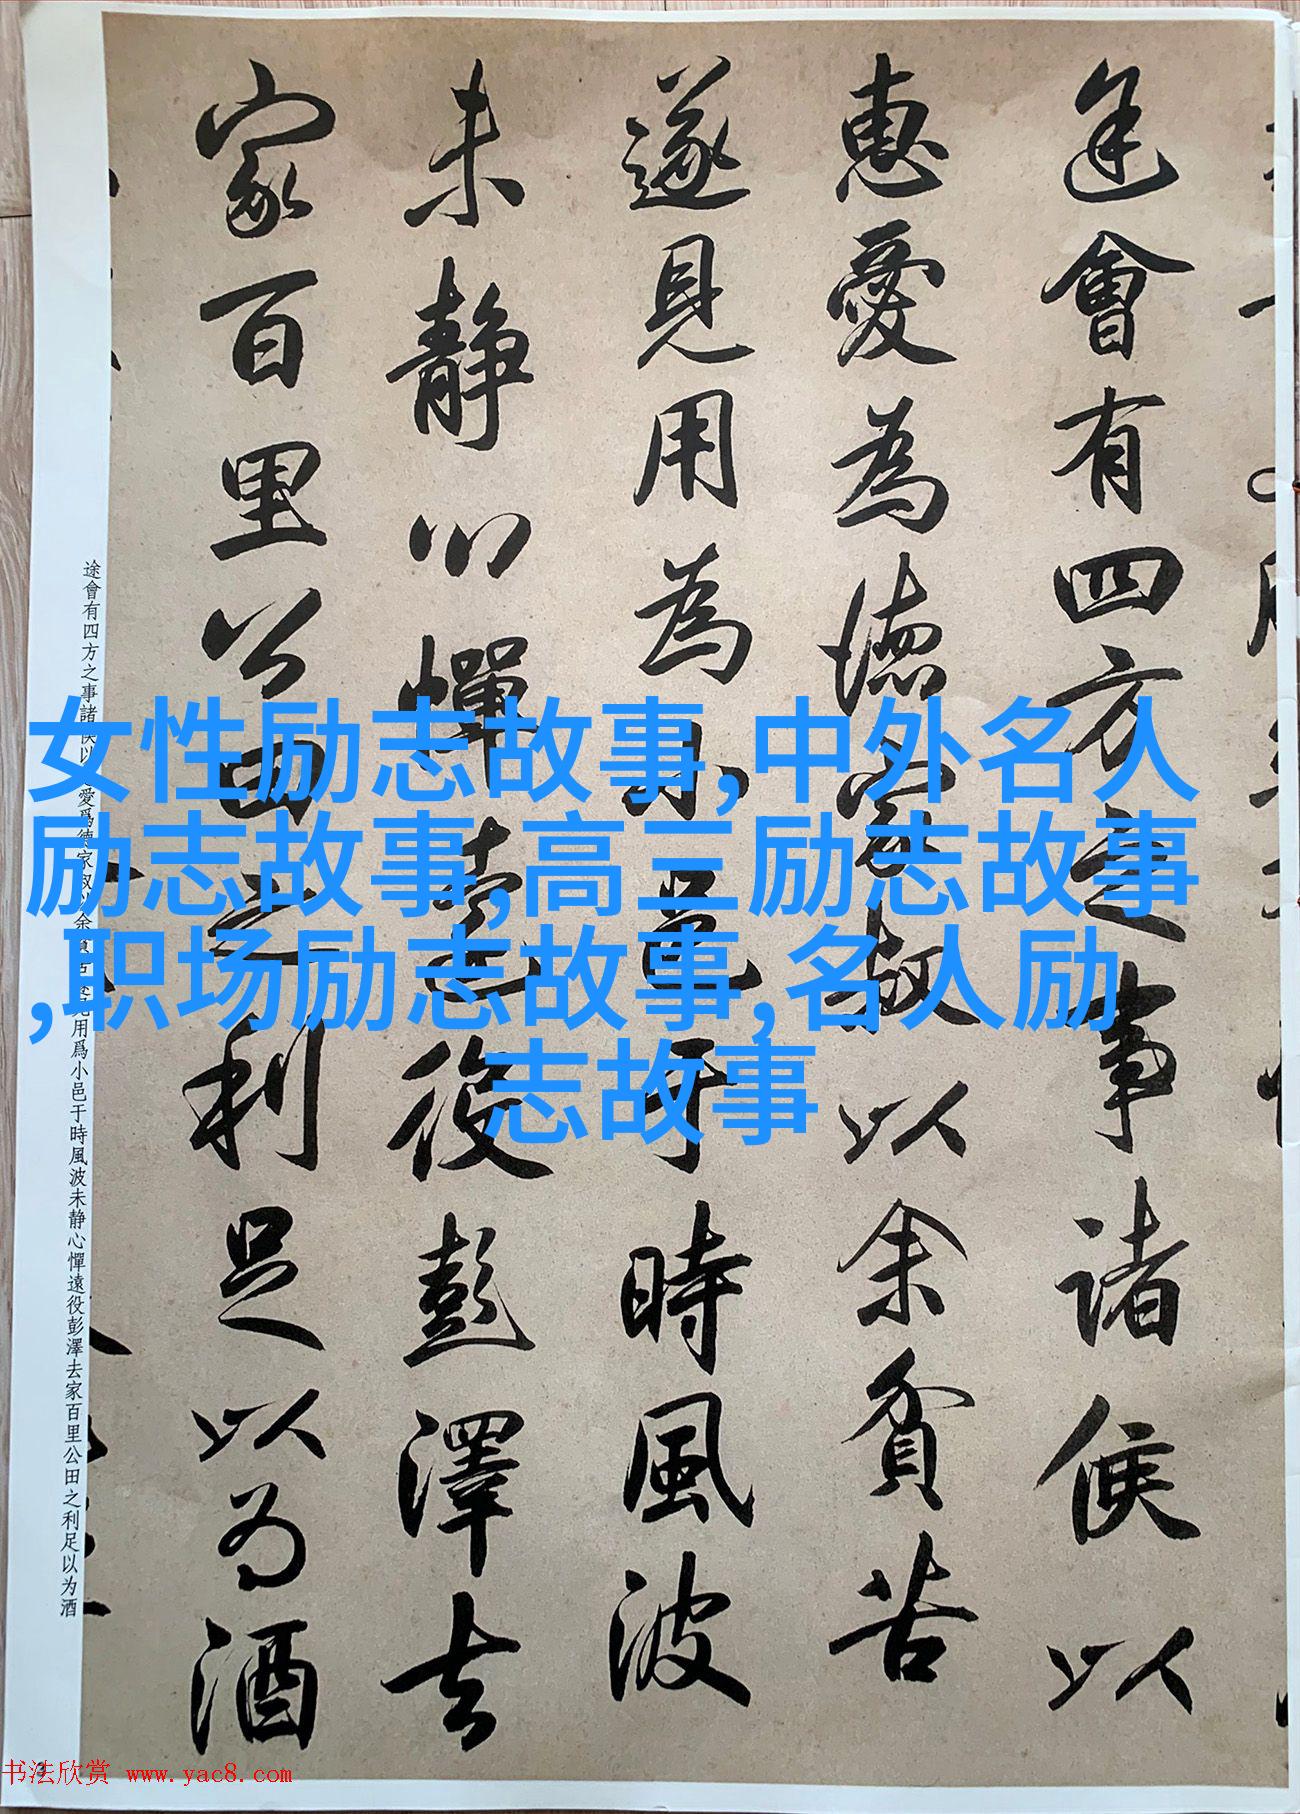 途會有四方之事諸侯以
惠愛為德家叔以余貧苦
遂見用為小邑于時風波
未静心憚遠役彭澤去
家百里公田之利足以為酒
途會有四方之事諸侯以惠愛爲德家叔以余貧苦遂見用爲小邑于時風波未静心憚遠役彭澤去家百里公田之利足以为酒
女性励志故事,中外名人
励志故事,高三励志故事
,职场励志故事,名人励
志故事
书法欣赏 www.yac8.com